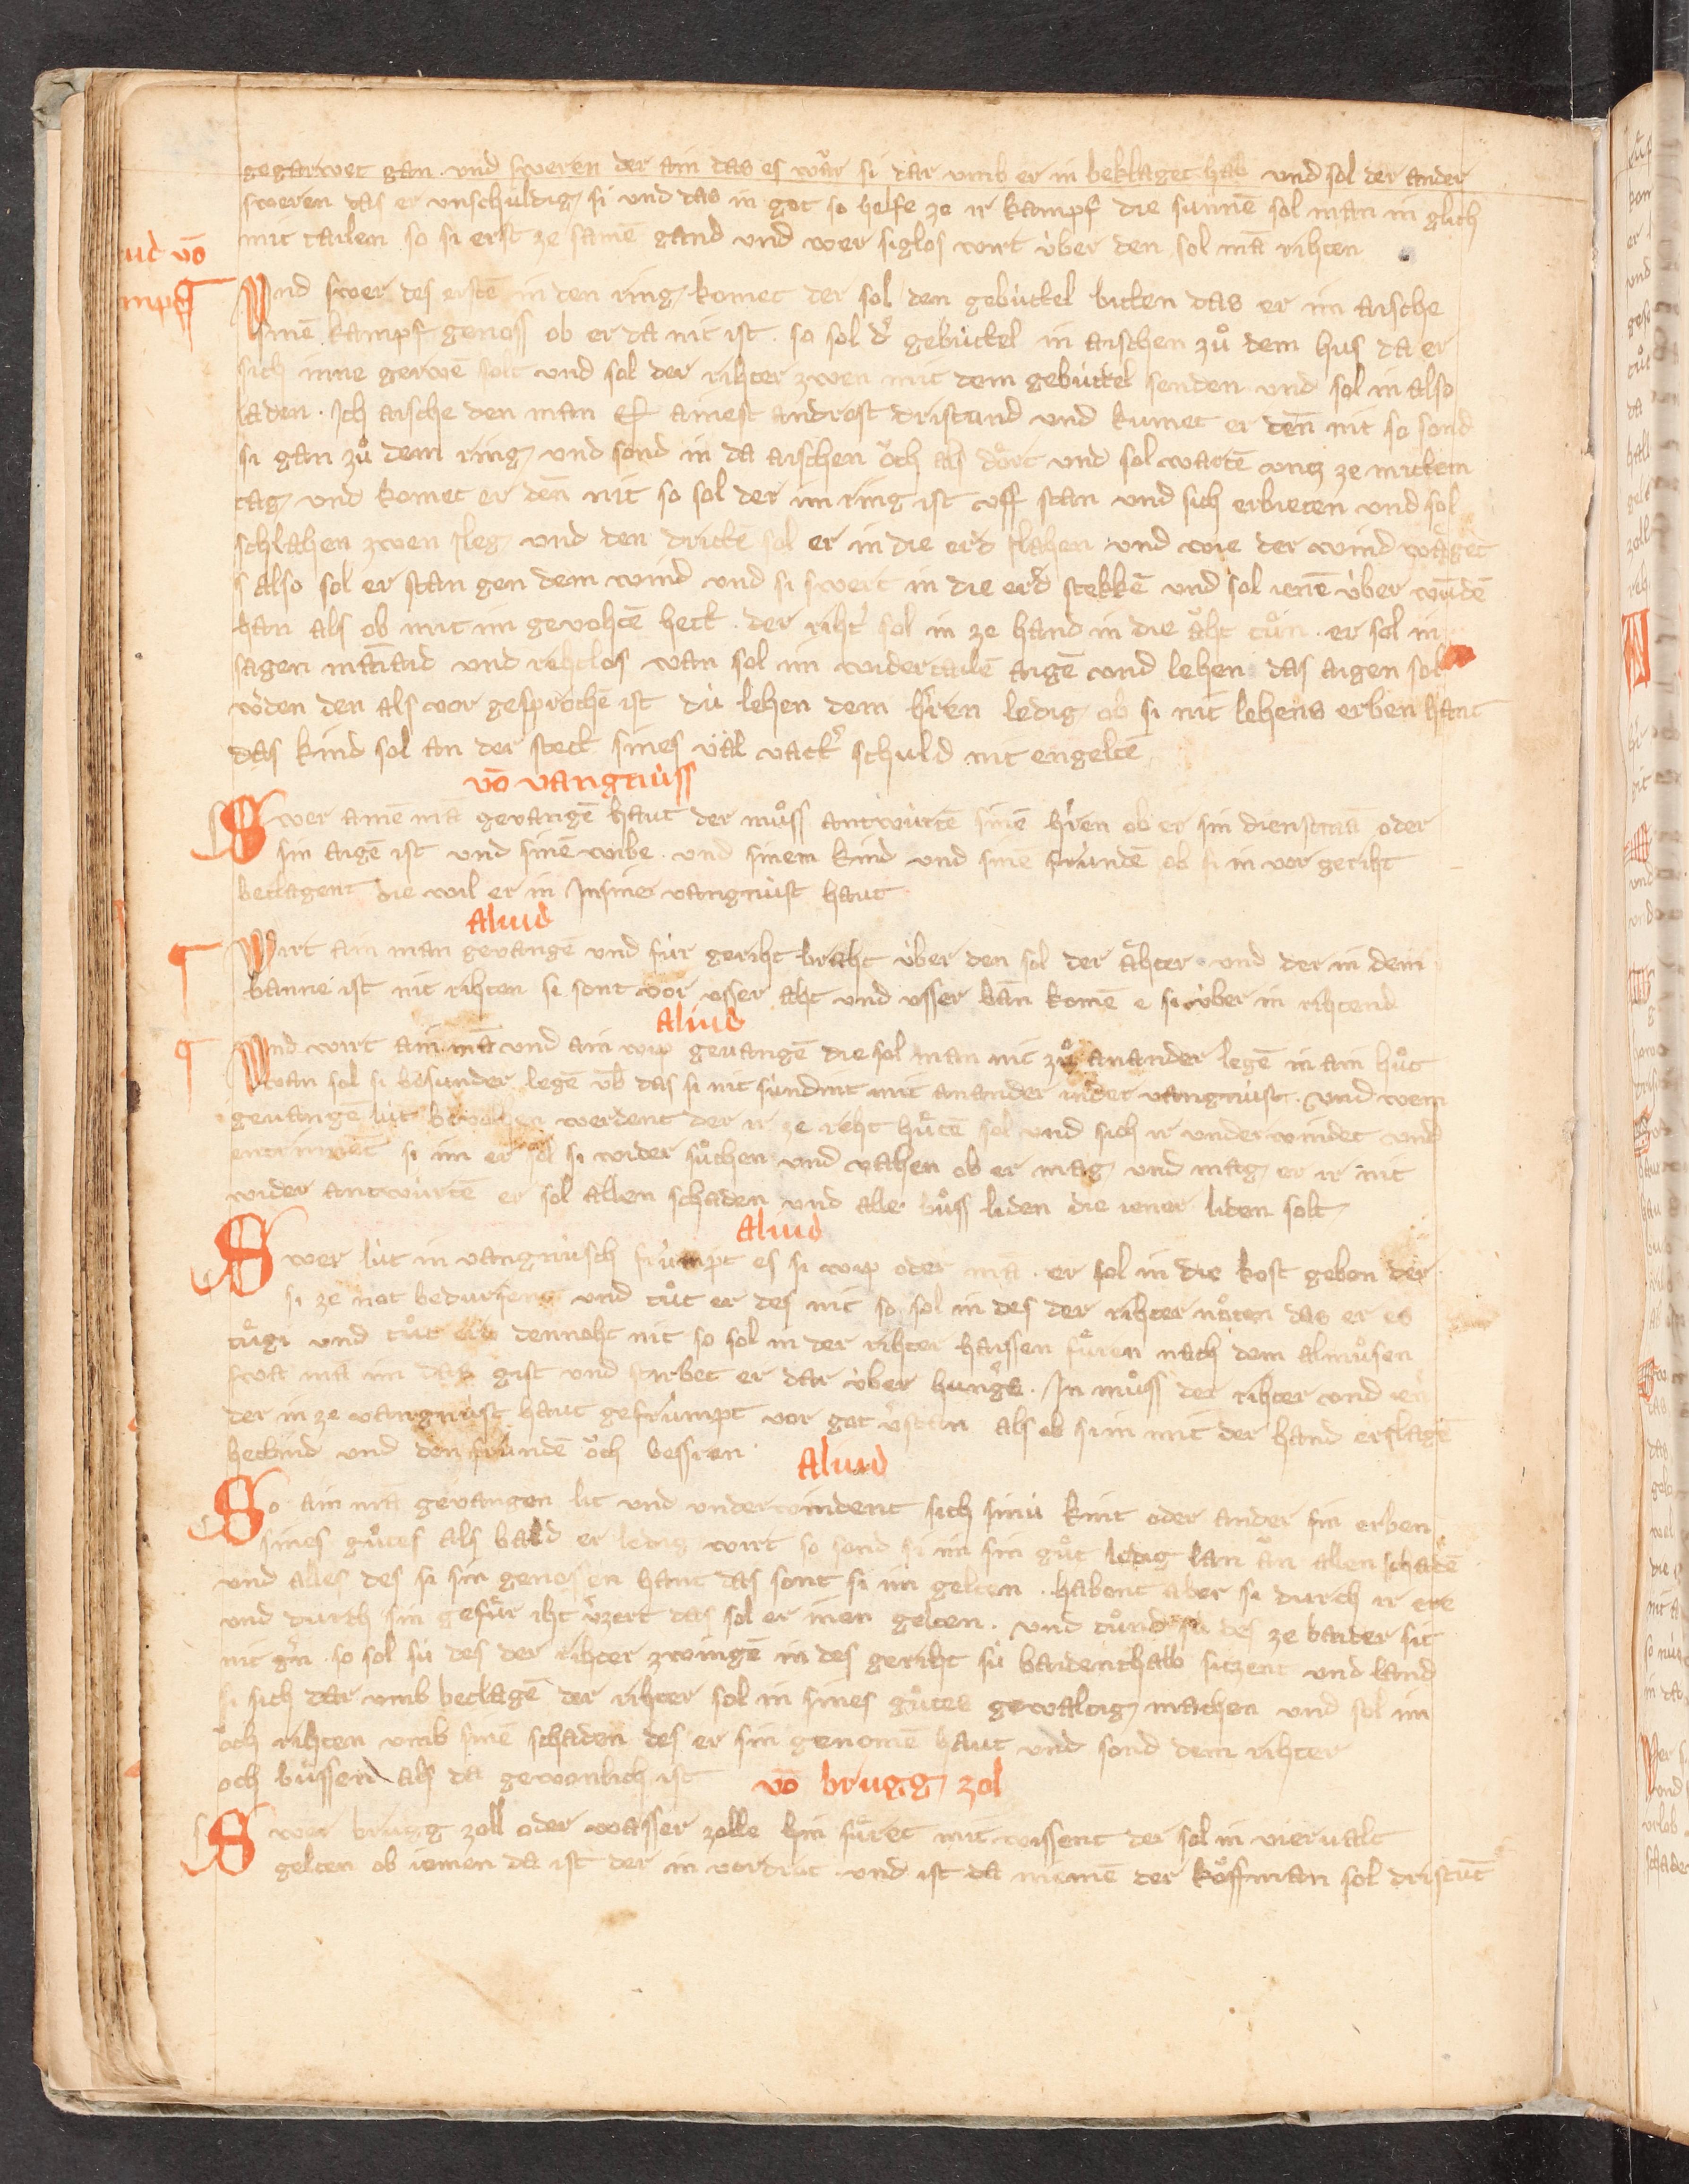 gegarwet gan. und sweren der ain das es wår si dar umb er in beklaget hab und sol der ander
sweren das er unschuldig si und das in got so helfe ze ir kampf die sunnē sol man in glich
mit tailen so si erst ze samē gand und wer siglos wirt ùber den sol mā rihten
ud vō
mpf
Und swer des erstē in den ring komet der sol den gebùttel bitten das er im aische
sinē kampf genoss ob er da nit ist. so sol dˀ gebùttel in aischen zů dem hus da er
sich inne gerwē solt und sol der rihter zwen mit dem gebùttel senden und sol in also
laden. Ich aische den man ainest androst dristund und kumet er deñ nit so sond
si gan zů dem ring und sond in da aischen ǒch als dǒrt und sol wartē untz ze mittem
tag und komet er deñ nit so sol der im ring ist uff stan und sich erbieten und sol
schlahen zwen sleg und den drittē sol er in die erd slahen und wie der wind wåget
also sol er stan gen dem wind und si swert in die erd stekkē und sol ienē ùber wūdē
han als ob mit im gevohtē hett. der rihtˀ sol in ze hand in die åht tůn. er sol in
sagen māttaid und rehtlos man sol im widertailē aigē und lehen das aigen sol
wˀden den als vor gesprochē ist dù lehen dem hˀren ledig ob si nit lehens erben hant
das kind sol an der stett sines val vattˀ schuld nit engeltē
vō vangnùss
Swer ainē mā gevangē haut der můss antwùrtē sinē hˀren ob er sin dienstmā oder
sin aigē ist und sinē wibe. und sinem kind und sinē frùndē ob si in vor geriht
beclagent die wil er in In siner vangnùst haut
Aliud
Wirt ain man gevangē und fùr geriht braht ùber den sol der åhter und der in dem
banne ist nit rihten si sont vor usser aht und usser bān komē e si ùber in rihtend
Aliud
Und wirt ain mā und ain wip gevangē die sol man nit zů anander legē in ain hůt
man sol si besunder legē ūb das si nit sùndint mit anander in der vangnùst. und wem
gevangē lùt bevolhen werdent der ir ze reht hůtē sol und sich ir underwindet und
entrinnēt si im er sol si wider sůchen und vahen ob er mag und mag er ir nit
wider antwùrtē er sol allen schaden und alle bůss liden die iener liden solt
Aliud
Swer lùt in vangnùsch frùmpt es si wip oder mā. er sol in die kost geben der
si ze not bedurfent und tůt er des nit so sol in des der rihter nöten das er es
tůgi und tůt er dennoht nit so sol in der rihter haissen fůren nach dem almůsen
swa mā im das gist und stirbet er dar ùber hungˀs. In můss der rihter und ienˀ
der in ze vangnùst haut gefrùmpt vor got ùstan als ob si in mit der hand erslagē
hettind und den frùndē ǒch bessren
Aliud
So ain mā gevangen lit und underwindent sich sinù kint oder ander sin erben
sines gůtes als bald er ledig wirt so sond si im sin gůt ledig lan ån allen schadē
und alles des si sin genossen hant das sont si im gelten. habent aber si durch ir ere
und durch sin gefůr iht ùzert das sol er inen gelten. und tůnd si des ze baider sit
nit gˀn. so sol sù des der rihter zwingē in des geriht sù baidenthalb sitzent und land
si sich dar umb beclagē der rihter sol in sines gůtes gewaltig machen und sol im
ǒch rihten umb sinē schaden des er sin genomē haut und sond dem rihter
och bůssen als da gewonlich ist
vō brugg zol
Swer brugg zoll oder wasser zolle hin fůret mit wissent der sol in viervalt
gelten ob iemen da ist der in vordrot und ist da niemē der kǒffman sol dristūt